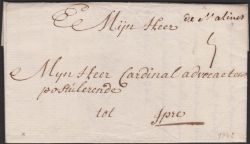 Mijn Heer
de Malines
5
Mijn Heer Cardinal advocaet
postulerende
tot Ipre